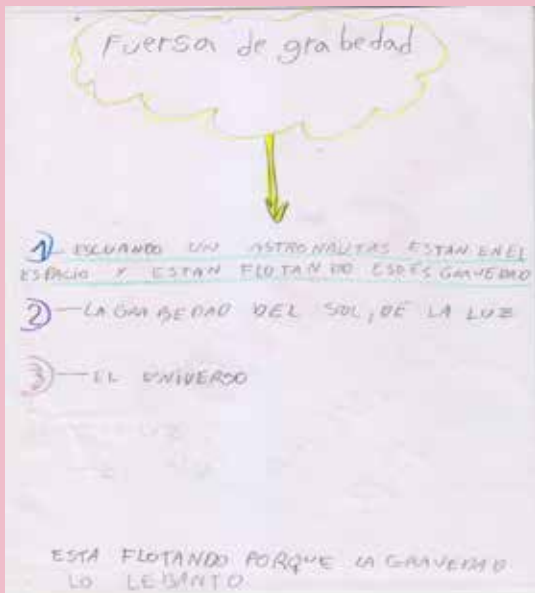 Fuersa de grabedad
1 — ESCUANDO UN ASTRONAUTAS ESTAN EN EL
ESPACIO Y ESTAN FLOTANDO ESO ES GRAVEDAD
2 — LA GRABEDAD DEL SOL, DE LA LUZ
3 — EL UNIVERSO
ESTA FLOTANDO PORQUE LA GRAVEDAD
LO LEBANTO